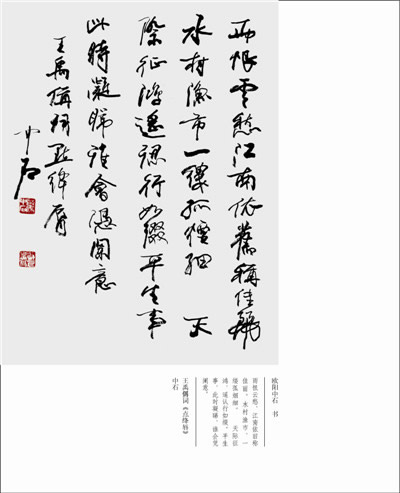 雨恨雲愁江南依舊稱佳麗
水村漁市一縷孤煙細 天
際征鴻遙認行如綴平生事
此時凝睇誰會憑闌意
王禹偁詞點絳唇
中石
欧阳中石 书
雨恨云愁，江南依旧称
佳丽。水村渔市，一
缕孤烟细。 天际征
鸿，遥认行如缀。平生
事，此时凝睇，谁会凭
阑意。
王禹偁词《点绛唇》
中石